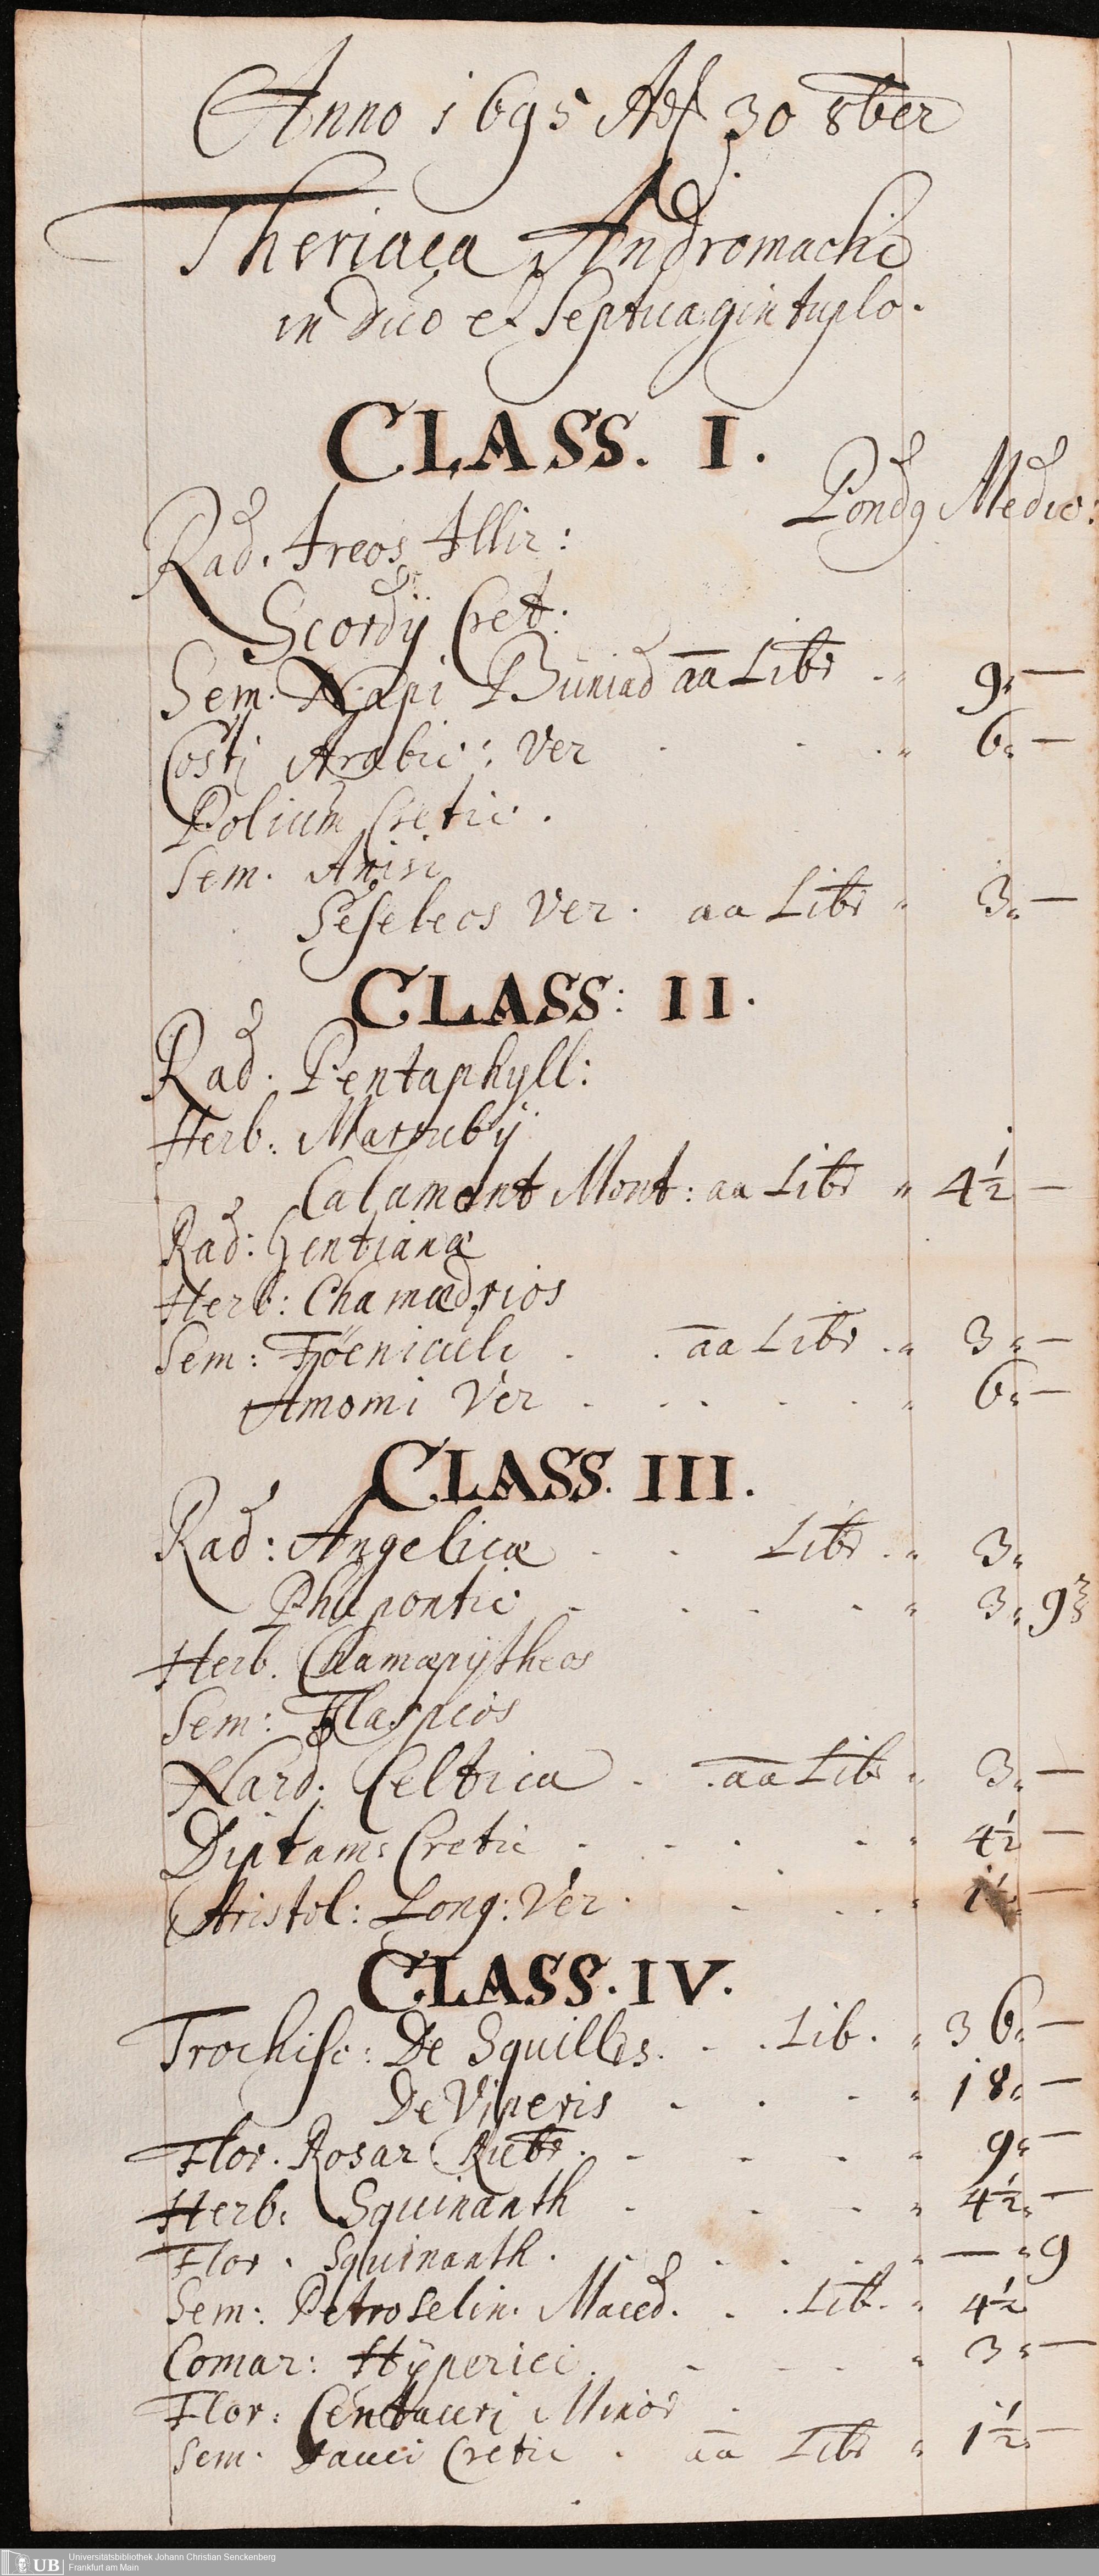 Anno 1695 Adj 30 8ber
Theriaca Andromachi
in duo et septuagintuplo.
CLASS. I.
Pond9 Medic:
Rad. Ireos Illir:
Scordij Cret:
Sem. Napi Buniad aa Libr " 9" —
Costj Arabic: Ver . . . " 6" —
Polium Cretic.
Sem. Anisi
Seseleos Ver. aa Libr " 3" —
CLASS: II.
Rad. Pentaphyll:
Herb. Marrubij
Calament Mont: aa Libr " 4½ —
Rad: Gentianæ
Herb: Chamædrios
Sem: Föeniculi . . aa Libr . " 3" —
Amomi Ver . . . . . " 6" —
CLASS. III.
Rad: Angelicæ . . Libr . " 3"
Rhapontic . . . . " 3" 9
Herb. Chamæpijtheos
Sem: Tlaspios
Nard. Celtica . . aa Libr " 3" —
Diptam: Cretic . . . . " 4½ —
Aristol: Long: Ver . . . . " 1½ —
CLASS. IV.
Trochisc: De Squillis. . . Lib. " 36" —
De Viperis . . . " 18" —
Flor. Rosar Rubr. . . . " 9" —
Herb: Squinanth . . . " 4½" —
Flor. Squinanth. . . . . " — " 9
Sem: Petroselin. Maced. . . Lib. " 4½
Comar: Hÿperici . . . . " 3" —
Flor: Centaurj Minor .
Sem. Dauci Cretic . aa Libr " 1½" —
UB
Universitätsbibliothek Johann Christian Senckenberg
Frankfurt am Main